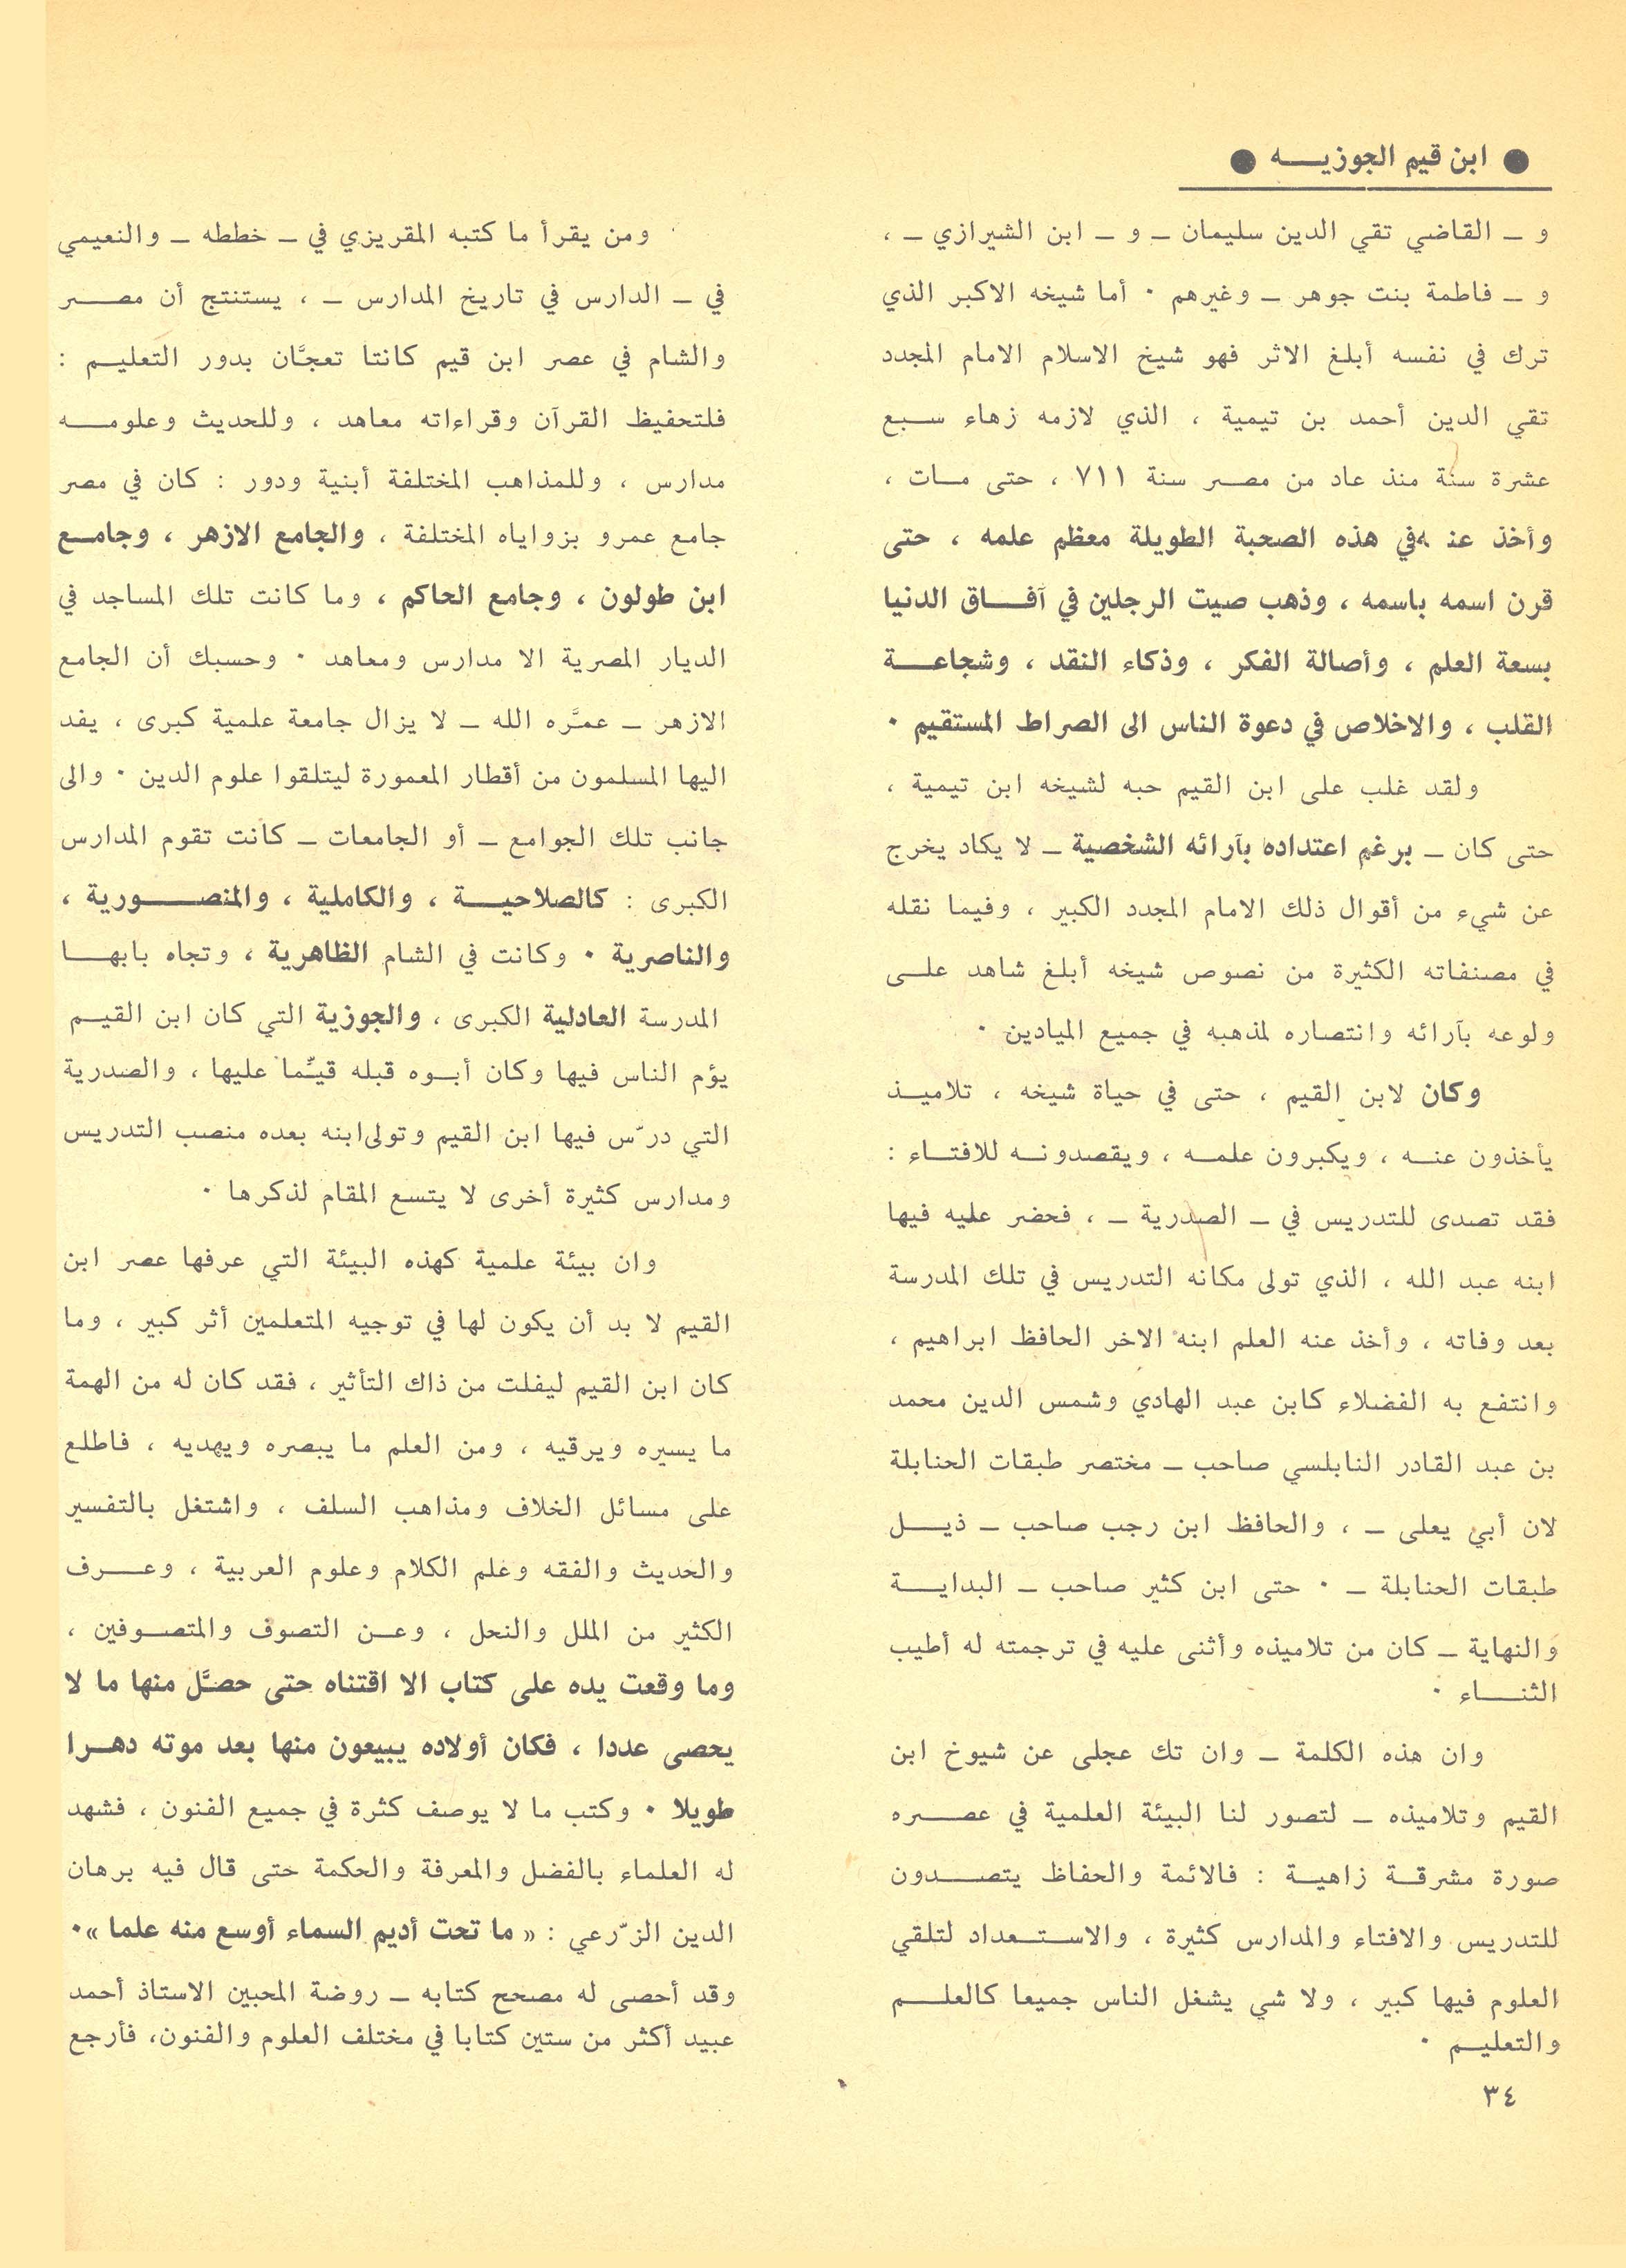 ● ابن قيم الجوزيـــه ●
و ـ القاضي تقي الدين سليمان ـ و ـ ابن الشيرازي ـ ،
و ـ فاطمة بنت جوهر ـ وغيرهم . أما شيخه الاكبر الذي
ترك في نفسه أبلغ الاثر فهو شيخ الاسلام الامام المجدد
تقي الدين أحمد بن تيمية ، الذي لازمه زهاء سبع
عشرة سنة منذ عاد من مصر سنة ٧١١ ، حتى مات ،
وأخذ عنـ ـه في هذه الصحبة الطويلة معظم علمه ، حتى
قرن اسمه باسمه ، وذهب صيت الرجلين في آفاق الدنيا
بسعة العلم ، وأصالة الفكر ، وذكاء النقد ، وشجاعة
القلب ، والاخلاص في دعوة الناس الى الصراط المستقيم .
ولقد غلب على ابن القيم حبه لشيخه ابن تيمية ،
حتى كان ـ برغم اعتداده بآرائه الشخصية ـ لا يكاد يخرج
عن شيء من أقوال ذلك الامام المجدد الكبير ، وفيما نقله
في مصنفاته الكثيرة من نصوص شيخه أبلغ شاهد على
ولوعه بآرائه وانتصاره لمذهبه في جميع الميادين .
وكان لابن القيم ، حتى في حياة شيخه ، تلاميذ
يأخذون عنه ، ويكبرون علمه ، ويقصدونه للافتاء :
فقد تصدى للتدريس في ـ الصدرية ـ ، فحضر عليه فيها
ابنه عبد الله ، الذي تولى مكانه التدريس في تلك المدرسة
بعد وفاته ، وأخذ عنه العلم ابنه الاخر الحافظ ابراهيم ،
وانتفع به الفضلاء كابن عبد الهادي وشمس الدين محمد
بن عبد القادر النابلسي صاحب ـ مختصر طبقات الحنابلة
لان أبي يعلى ـ ، والحافظ ابن رجب صاحب ـ ذيل
طبقات الحنابلة ـ . حتى ابن كثير صاحب ـ البداية
والنهاية ـ كان من تلاميذه وأثنى عليه في ترجمته له أطيب
الثناء .
وان هذه الكلمة ـ وان تك عجلى عن شيوخ ابن
القيم وتلاميذه ـ لتصور لنا البيئة العلمية في عصره
صورة مشرقة زاهية : فالائمة والحفاظ يتصدون
للتدريس والافتاء والمدارس كثيرة ، والاستعداد لتلقي
العلوم فيها كبير ، ولا شي يشغل الناس جميعا كالعلم
والتعليم .
٣٤
ومن يقرأ ما كتبه المقريزي في ـ خططه ـ والنعيمي
في ـ الدارس في تاريخ المدارس ـ ، يستنتج أن مصر
والشام في عصر ابن قيم كانتا تعجَّان بدور التعليم :
فلتحفيظ القرآن وقراءاته معاهد ، وللحديث وعلومه
مدارس ، وللمذاهب المختلفة أبنية ودور : كان في مصر
جامع عمرو بزواياه المختلفة ، والجامع الازهر ، وجامع
ابن طولون ، وجامع الحاكم ، وما كانت تلك المساجد في
الديار المصرية الا مدارس ومعاهد . وحسبك أن الجامع
الازهر ـ عمَّره الله ـ لا يزال جامعة علمية كبرى ، يفد
اليها المسلمون من أقطار المعمورة ليتلقوا علوم الدين . والى
جانب تلك الجوامع ـ أو الجامعات ـ كانت تقوم المدارس
الكبرى : كالصلاحية ، والكاملية ، والمنصورية ،
والناصرية . وكانت في الشام الظاهرية ، وتجاه بابها
المدرسة العادلية الكبرى ، والجوزية التي كان ابن القيم
يؤم الناس فيها وكان أبوه قبله قيّما عليها ، والصدرية
التي درّس فيها ابن القيم وتولى ابنه بعده منصب التدريس
ومدارس كثيرة أخرى لا يتسع المقام لذكرها .
وان بيئة علمية كهذه البيئة التي عرفها عصر ابن
القيم لا بد أن يكون لها في توجيه المتعلمين أثر كبير ، وما
كان ابن القيم ليفلت من ذاك التأثير ، فقد كان له من الهمة
ما يسيره ويرقيه ، ومن العلم ما يبصره ويهديه ، فاطلع
على مسائل الخلاف ومذاهب السلف ، واشتغل بالتفسير
والحديث والفقه وعلم الكلام وعلوم العربية ، وعرف
الكثير من الملل والنحل ، وعن التصوف والمتصوفين ،
وما وقعت يده على كتاب الا اقتناه حتى حصَّل منها ما لا
يحصى عددا ، فكان أولاده يبيعون منها بعد موته دهرا
طويلا . وكتب ما لا يوصف كثرة في جميع الفنون ، فشهد
له العلماء بالفضل والمعرفة والحكمة حتى قال فيه برهان
الدين الزّرعي : « ما تحت أديم السماء أوسع منه علما ».
وقد أحصى له مصحح كتابه ـ روضة المحبين الاستاذ أحمد
عبيد أكثر من ستين كتابا في مختلف العلوم والفنون، فأرجع